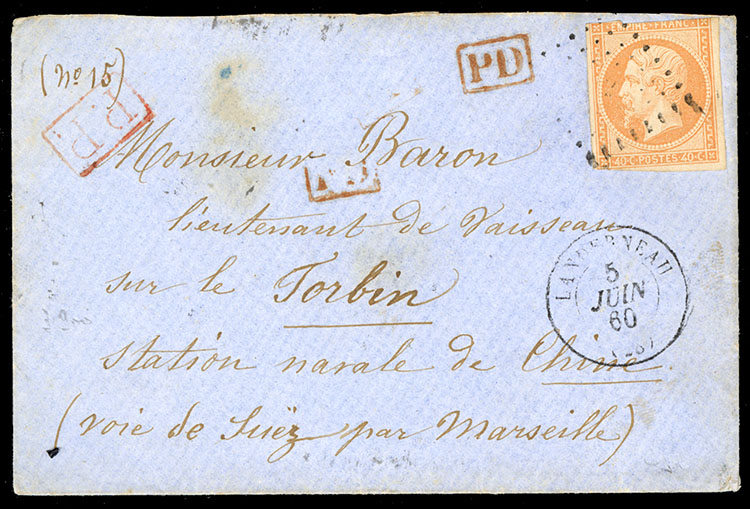 (No 15)
PD
EMPIRE FRANC
40·C·POSTES·40·C
P.P.
Monsieur Baron
lieutenant de Vaisseau
sur le Forbin
LANDERNEAU
5
JUIN
60
(28)
station navale de Chine.
(voie de Suëz par Marseille)